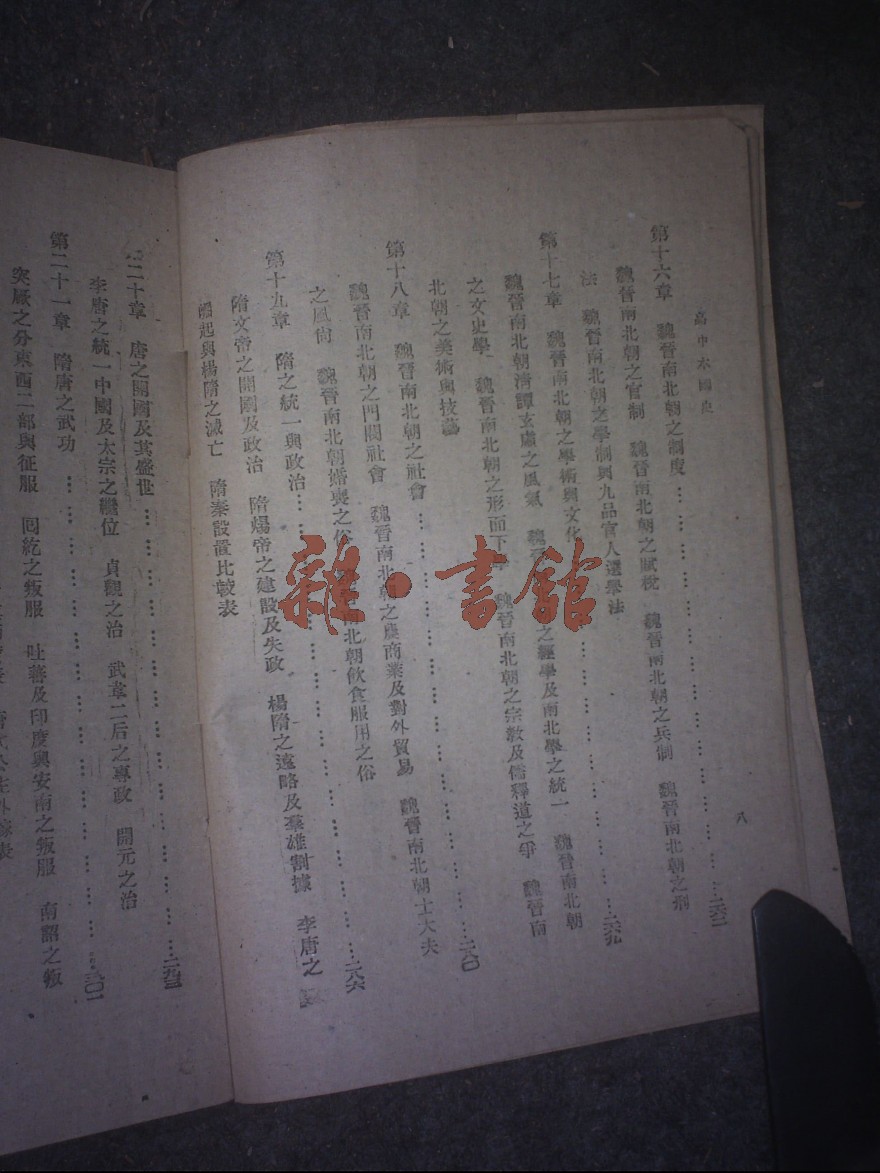 高中本國史
八
第十六章　魏晉南北朝之制度……二六二
魏晉南北朝之官制　魏晉南北朝之賦稅　魏晉南北朝之兵制　魏晉南北朝之刑
法　魏晉南北朝之學制與九品官人選舉法
第十七章　魏晉南北朝之學術與文化……二六九
魏晉南北朝清譚玄虛之風氣　魏晉　之經學及南北學之統一　魏晉南北朝
之文史學　魏晉南北朝之形而下學　魏晉南北朝之宗教及儒釋道之爭　魏晉南
北朝之美術與技藝
第十八章　魏晉南北朝之社會……二八〇
魏晉南北朝之門閥社會　魏晉南北朝之農商業及對外貿易　魏晉南北朝士大夫
之風尚　魏晉南北朝婚喪之俗　北朝飲食服用之俗
第十九章　隋之統一與政治……二八六
隋文帝之開國及政治　隋煬帝之建設及失政　楊隋之遠略及羣雄割據　李唐之
崛起與楊隋之滅亡　隋秦設置比較表
二十章　唐之開國及其盛世……二九三
李唐之統一中國及太宗之繼位　貞觀之治　武韋二后之專政　開元之治
第二十一章　隋唐之武功……三〇一
突厥之分東西二部與征服　回紇之叛服　吐蕃及印度與安南之叛服　南詔之叛
雜·書館